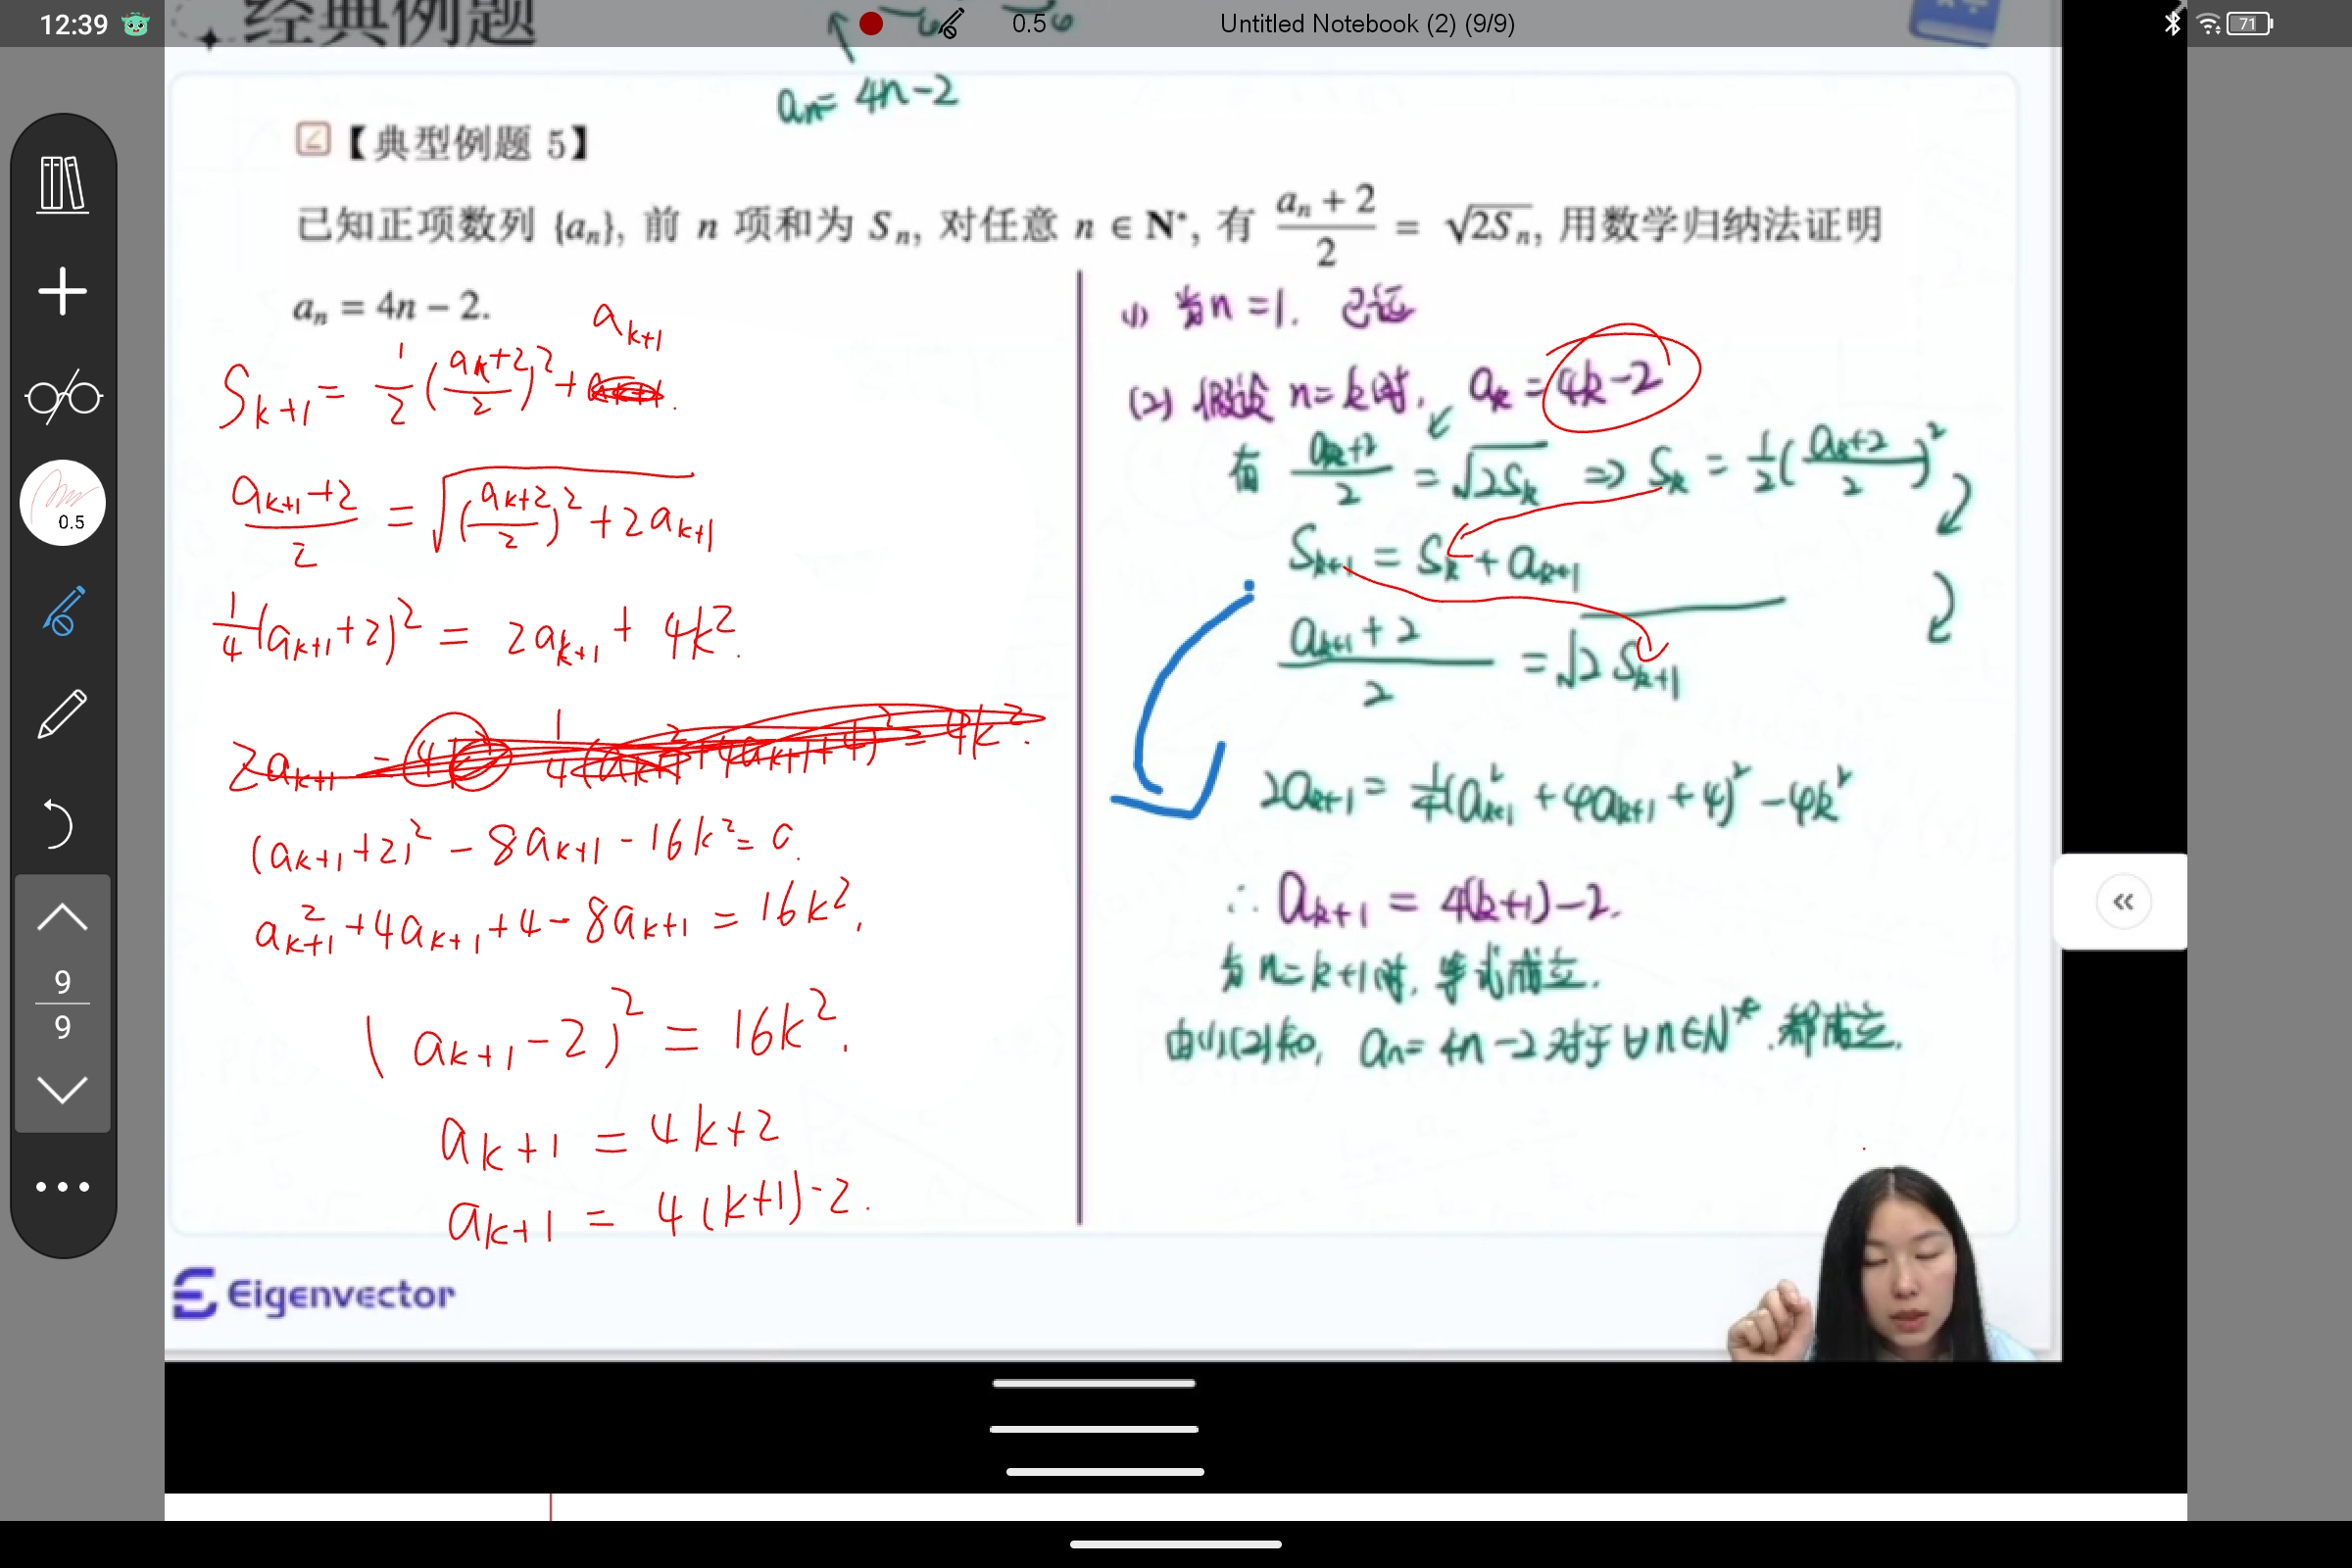 12:39
0.5
Untitled Notebook (2) (9/9)
71
经典例题
aₙ = 4n-2
【典型例题 5】
已知正项数列 {aₙ}, 前 n 项和为 Sₙ, 对任意 n ∈ N*, 有 (aₙ + 2)/2 = √(2Sₙ), 用数学归纳法证明
aₙ = 4n − 2.
a_{k+1}
S_{k+1} = 1/2 ((a_k+2)/2)² +
(a_{k+1}+2)/2 = √(((a_k+2)/2)² + 2a_{k+1})
1/4 (a_{k+1}+2)² = 2a_{k+1} + 4k².
(a_{k+1}+2)² - 8a_{k+1} - 16k² = 0.
a²_{k+1} + 4a_{k+1} + 4 - 8a_{k+1} = 16k².
(a_{k+1} - 2)² = 16k².
a_{k+1} = 4k+2
a_{k+1} = 4(k+1)-2.
(1) 当n=1. 已证
(2) 假设 n=k时, a_k = 4k-2
有 (a_k+2)/2 = √(2S_k) ⇒ S_k = 1/2 ((a_k+2)/2)²
S_{k+1} = S_k + a_{k+1}
(a_{k+1}+2)/2 = √(2S_{k+1})
2a_{k+1} = 1/4 (a²_{k+1} + 4a_{k+1} + 4)² - 4k²
∴ a_{k+1} = 4(k+1)-2.
当 n=k+1时, 等式成立.
由(1)(2)知, aₙ = 4n-2 对于∀n∈N*.都成立.
0.5
9
9
Eigenvector